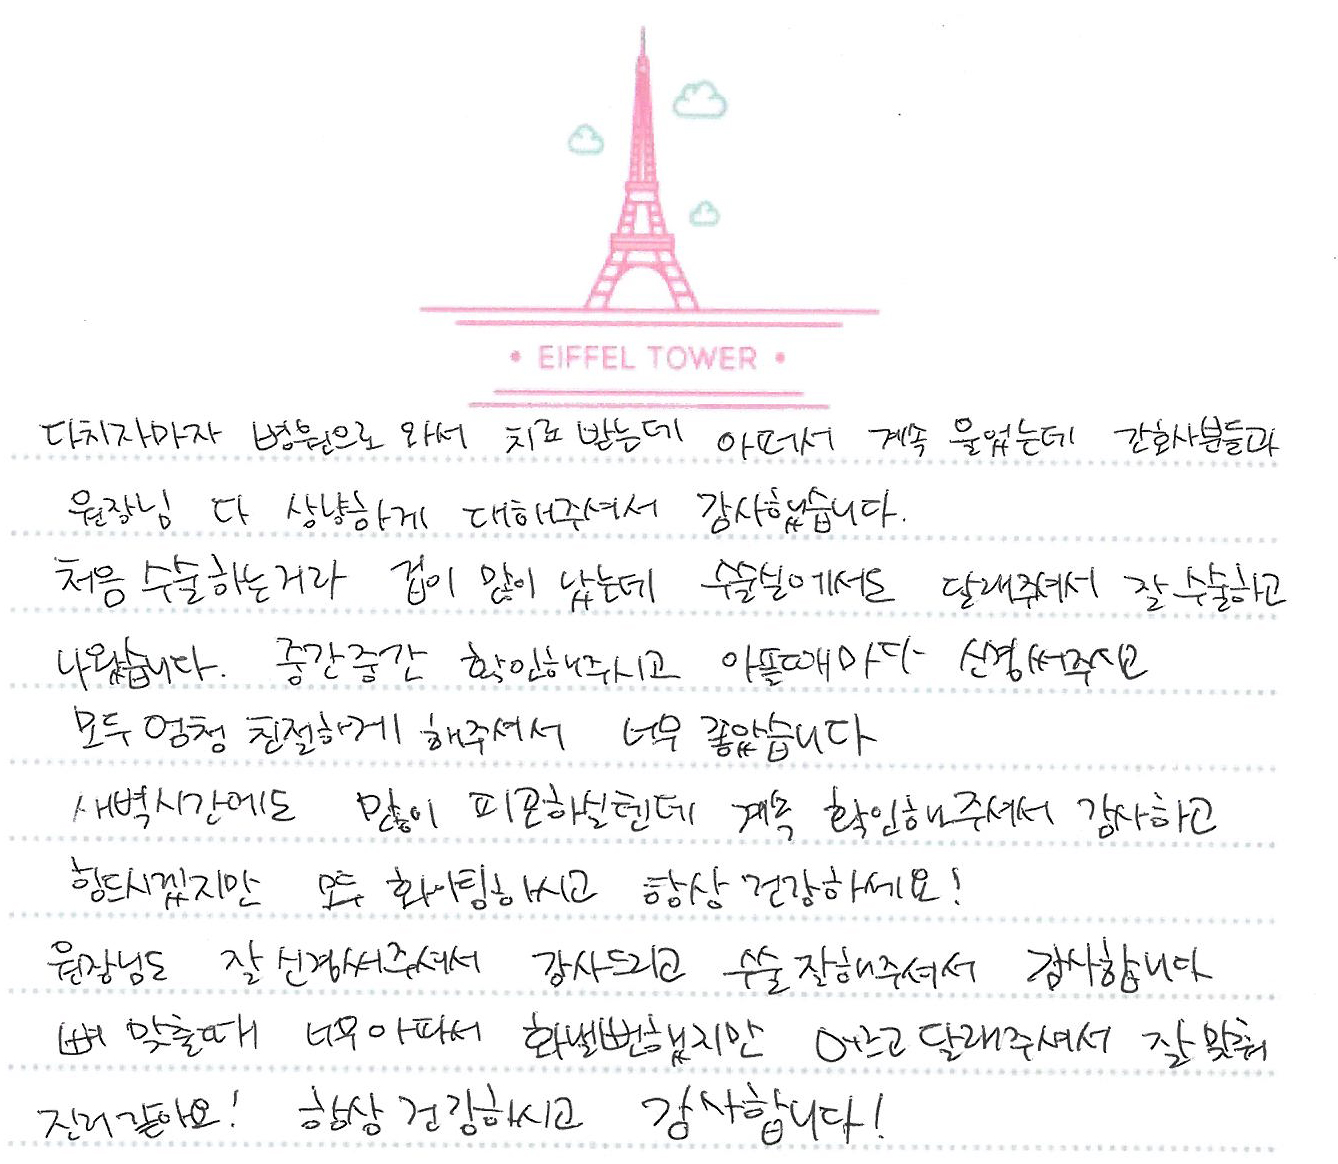 • EIFFEL TOWER •
다치자마자 병원으로 와서 치료 받는데 아퍼서 계속 울었는데 간호사분들과
원장님 다 상냥하게 대해주셔서 감사했습니다.
처음 수술하는거라 겁이 많이 났는데 수술실에서도 달래주셔서 잘 수술하고
나왔습니다. 중간중간 확인해주시고 아플때마다 신경써주시고
모두 엄청 친절하게 해주셔서 너무 좋았습니다
새벽시간에도 많이 피곤하실텐데 계속 확인해주셔서 감사하고
힘드시겠지만 모두 화이팅하시고 항상 건강하세요!
원장님도 잘 신경써주셔서 감사드리고 수술 잘해주셔서 감사합니다
뼈 맞출때 너무 아파서 화낼뻔했지만 어르고 달래주셔서 잘 맞춰
진거같아요! 항상 건강하시고 감사합니다!